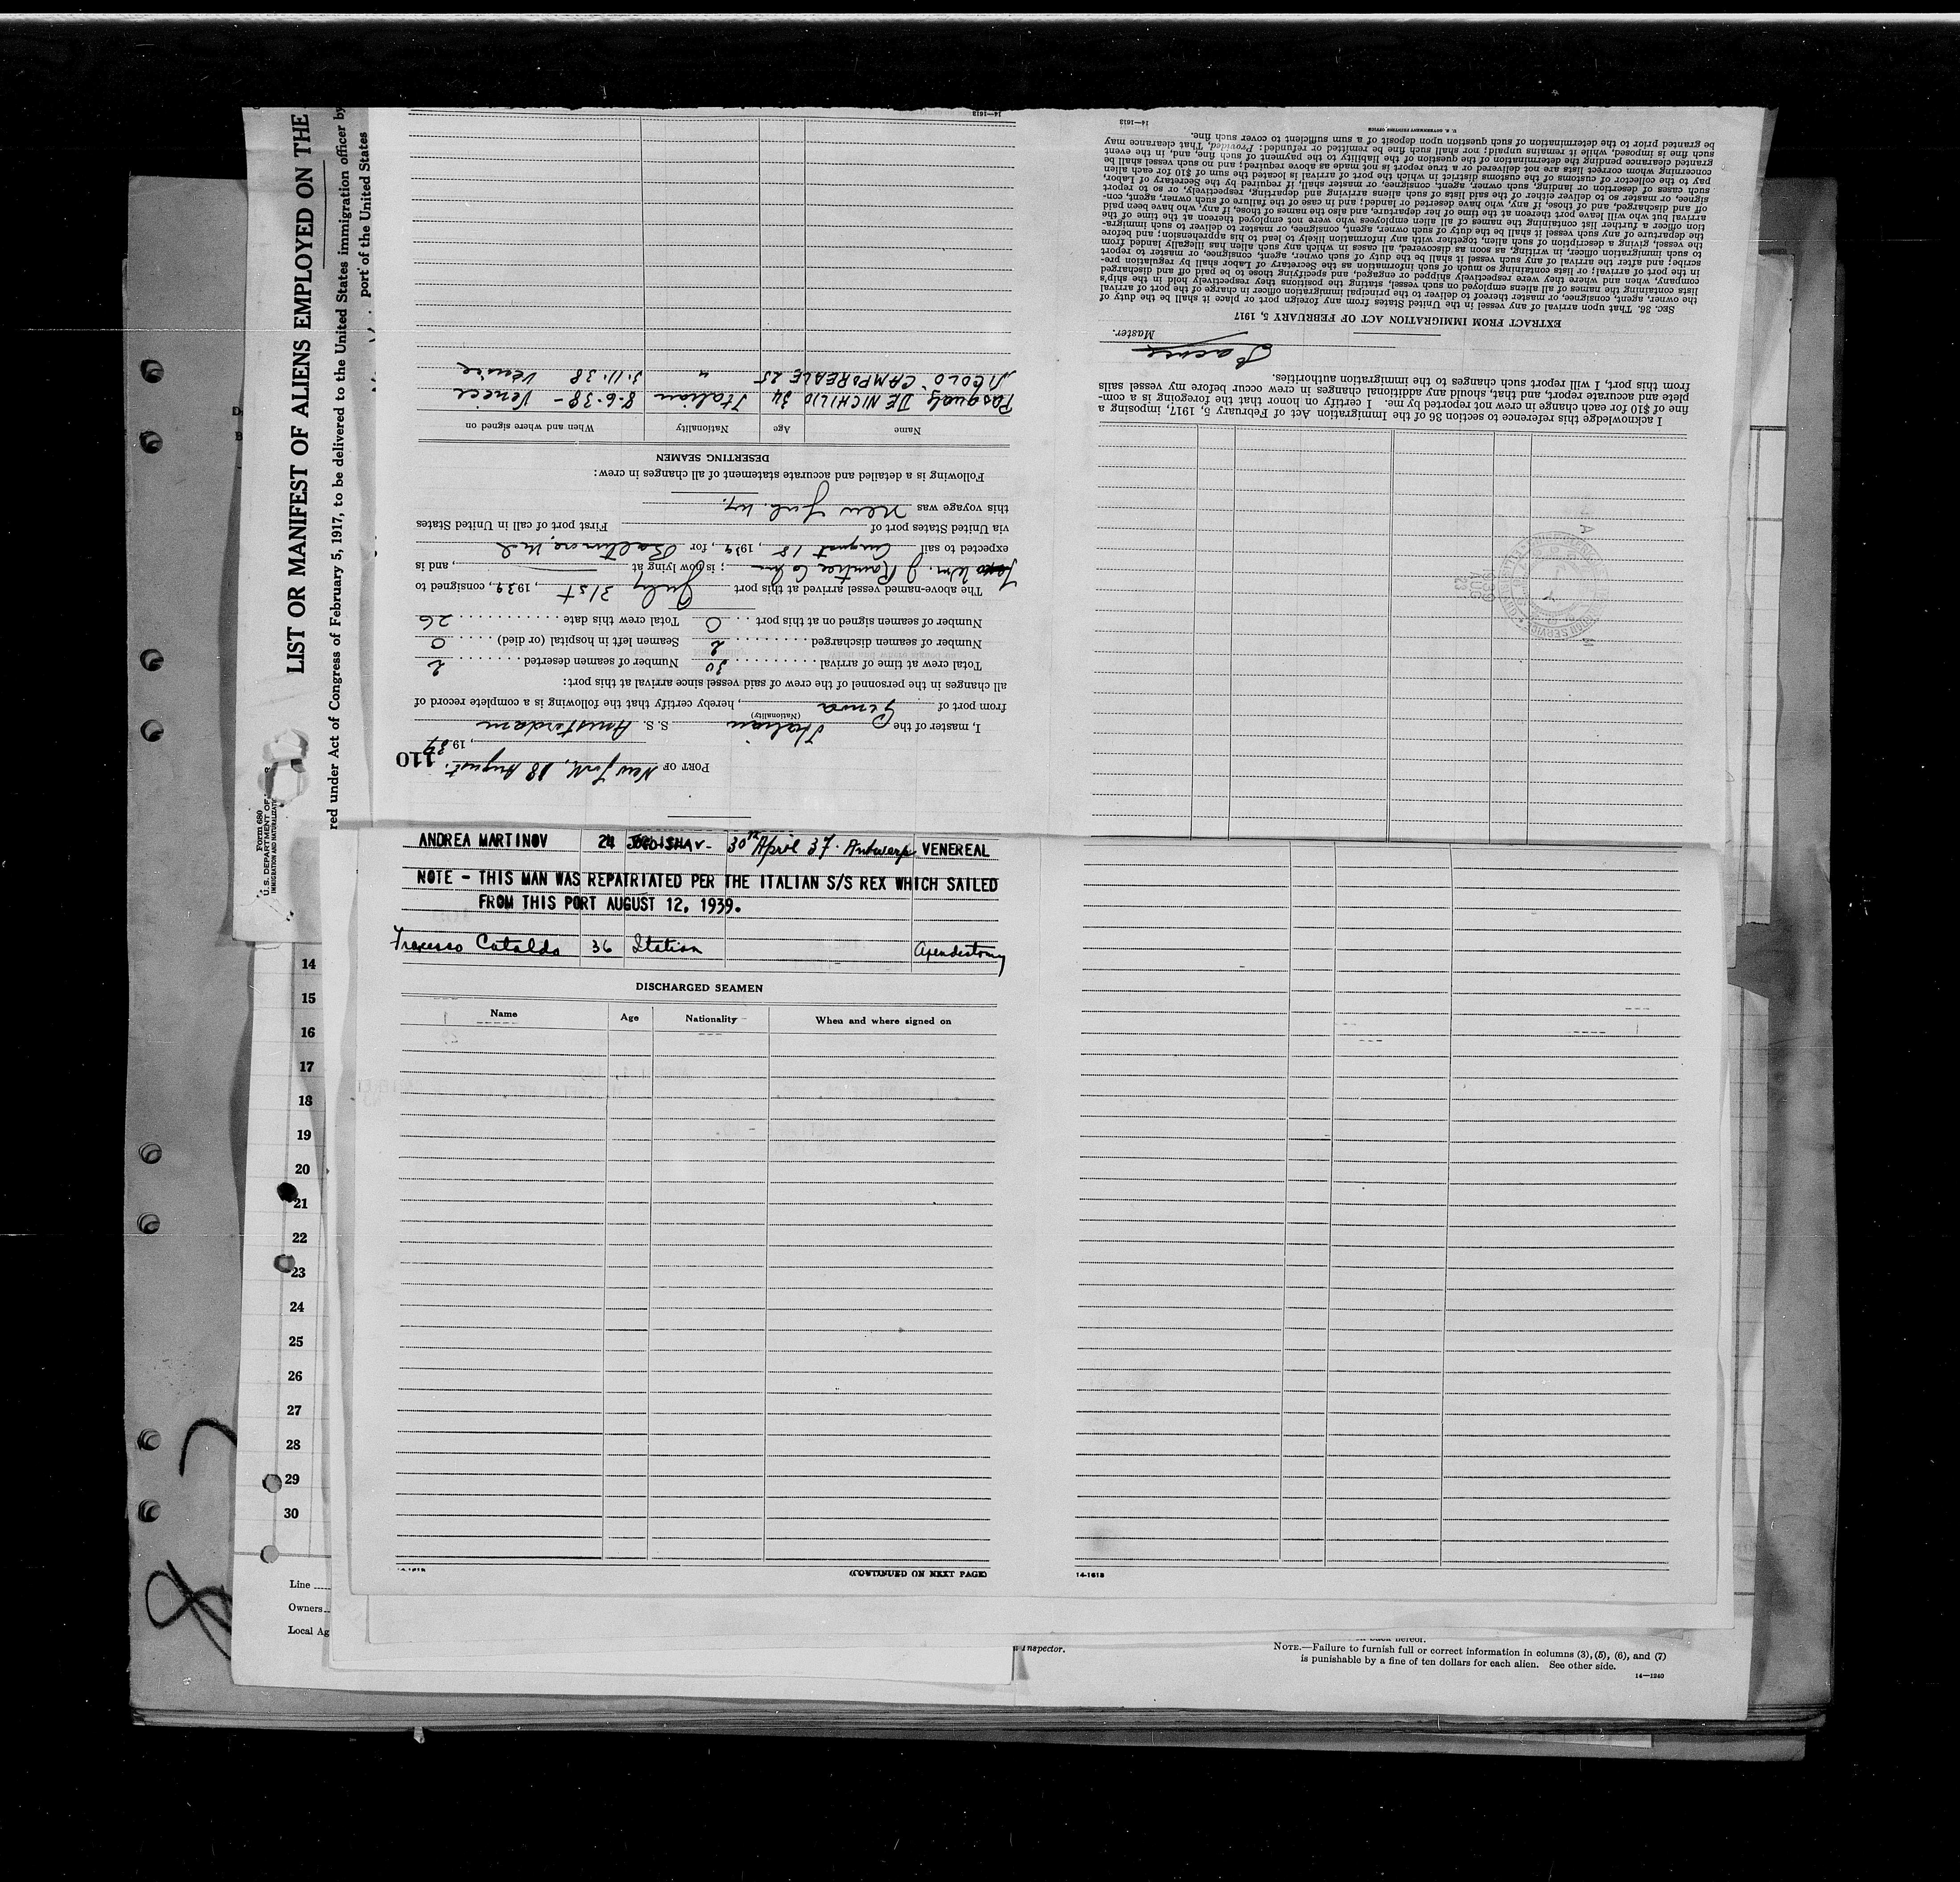 LIST OR MANIFEST OF ALIENS EMPLOYED ON THE
red under Act of Congress of February 5, 1917, to be delivered to the United States immigration officer by
port of the United States
Form 680
U.S. DEPARTMENT OF
IMMIGRATION AND NATURALIZATI
110
PORT OF New York, 18 August, 1939
I, master of the Italian S. S. Amsterdam
(Nationality)
from port of Genoa, hereby certify that the following is a complete record of
all changes in the personnel of the crew of said vessel since arrival at this port:
Total crew at time of arrival 30 Number of seamen deserted 2
Number of seamen discharged 2 Seamen left in hospital (or died) 0
Number of seamen signed on at this port 0 Total crew this date 26
The above-named vessel arrived at this port July 31st, 1939, consigned to
Wm. J. ; is now lying at , and is
expected to sail August 18, 1939, for Baltimore, Md
via United States port of First port of call in United States
this voyage was New York. N.Y.
Following is a detailed and accurate statement of all changes in crew:
DESERTING SEAMEN
Name Age Nationality When and where signed on
Pasquale DE NICHILIO 34 Italian 8-6-38 - Venice
NICOLO' CAMPOREALE 25 " 3-11-38 Venice
14—1613
I acknowledge this reference to section 36 of the Immigration Act of February 5, 1917, imposing a
fine of $10 for each change in crew not reported by me. I certify on honor that the foregoing is a com-
plete and accurate report, and that, should any additional changes in crew occur before my vessel sails
from this port, I will report such changes to the immigration authorities.
Master.
EXTRACT FROM IMMIGRATION ACT OF FEBRUARY 5, 1917
SEC. 36. That upon arrival of any vessel in the United States from any foreign port or place it shall be the duty of
the owner, agent, consignee, or master thereof to deliver to the principal immigration officer in charge of the port of arrival
lists containing the names of all aliens employed on such vessel, stating the positions they respectively hold in the ship's
company, when and where they were respectively shipped or engaged, and specifying those to be paid off and discharged
in the port of arrival; or lists containing so much of such information as the Secretary of Labor shall by regulation pre-
scribe; and after the arrival of any such vessel it shall be the duty of such owner, agent, consignee, or master to report
to such immigration officer, in writing, as soon as discovered, all cases in which any such alien has illegally landed from
the vessel, giving a description of such alien, together with any information likely to lead to his apprehension; and before
the departure of any such vessel it shall be the duty of such owner, agent, consignee, or master to deliver to such immigra-
tion officer a further list containing the names of all alien employees who were not employed thereon at the time of the
arrival but who will leave port thereon at the time of her departure, and also the names of those, if any, who have been paid
off and discharged, and of those, if any, who have deserted or landed; and in case of the failure of such owner, agent, con-
signee, or master so to deliver either of the said lists of such aliens arriving and departing, respectively, or so to report
such cases of desertion or landing, such owner, agent, consignee, or master shall, if required by the Secretary of Labor,
pay to the collector of customs of the customs district in which the port of arrival is located the sum of $10 for each alien
concerning whom correct lists are not delivered or a true report is not made as above required; and no such vessel shall be
granted clearance pending the determination of the question of the liability to the payment of such fine, and, in the event
such fine is imposed, while it remains unpaid; nor shall such fine be remitted or refunded: Provided, That clearance may
be granted prior to the determination of such question upon deposit of a sum sufficient to cover such fine.
U. S. GOVERNMENT PRINTING OFFICE
14—1613
ANDREA MARTINOV 24 30th April 37. Antwerp VENEREAL
NOTE - THIS MAN WAS REPATRIATED PER THE ITALIAN S/S REX WHICH SAILED
FROM THIS PORT AUGUST 12, 1939.
Cataldo 36 Italian Apendectomy
DISCHARGED SEAMEN
Name Age Nationality When and where signed on
(CONTINUED ON NEXT PAGE)
14-1613
14
15
16
17
18
19
20
21
22
23
24
25
26
27
28
29
30
Line
Owners
Local Ag
Inspector.
NOTE.—Failure to furnish full or correct information in columns (3), (5), (6), and (7)
is punishable by a fine of ten dollars for each alien. See other side.
14—1240